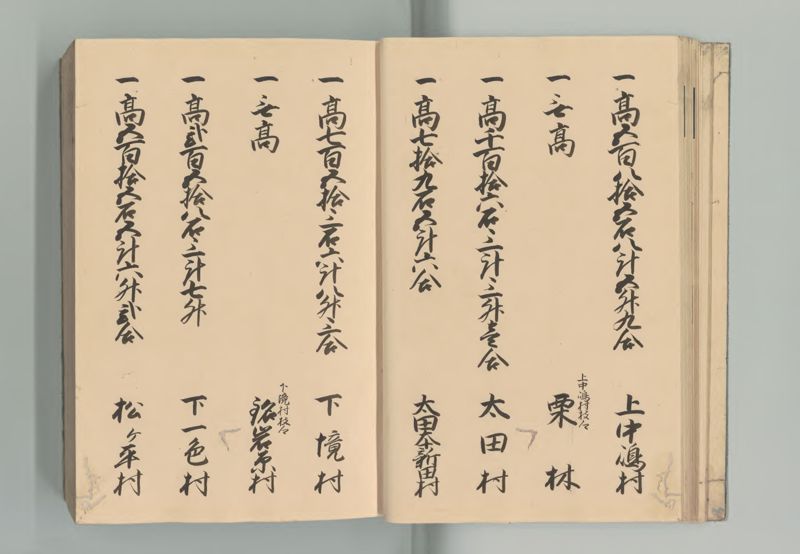 一高五百八拾五石八斗五升九合 上中嶋村
一無高 上中嶋村枝々 栗林
一高千百拾六石三斗三升壱合 太田村
一高七拾九石五斗六合 太田本新田村
一高七百五拾三石六斗八升三合 下境村
一無高 下境村枝々 村
一高弐百五拾八石三斗七升 下一色村
一高五百拾五石五斗六升弐合 松ヶ平村